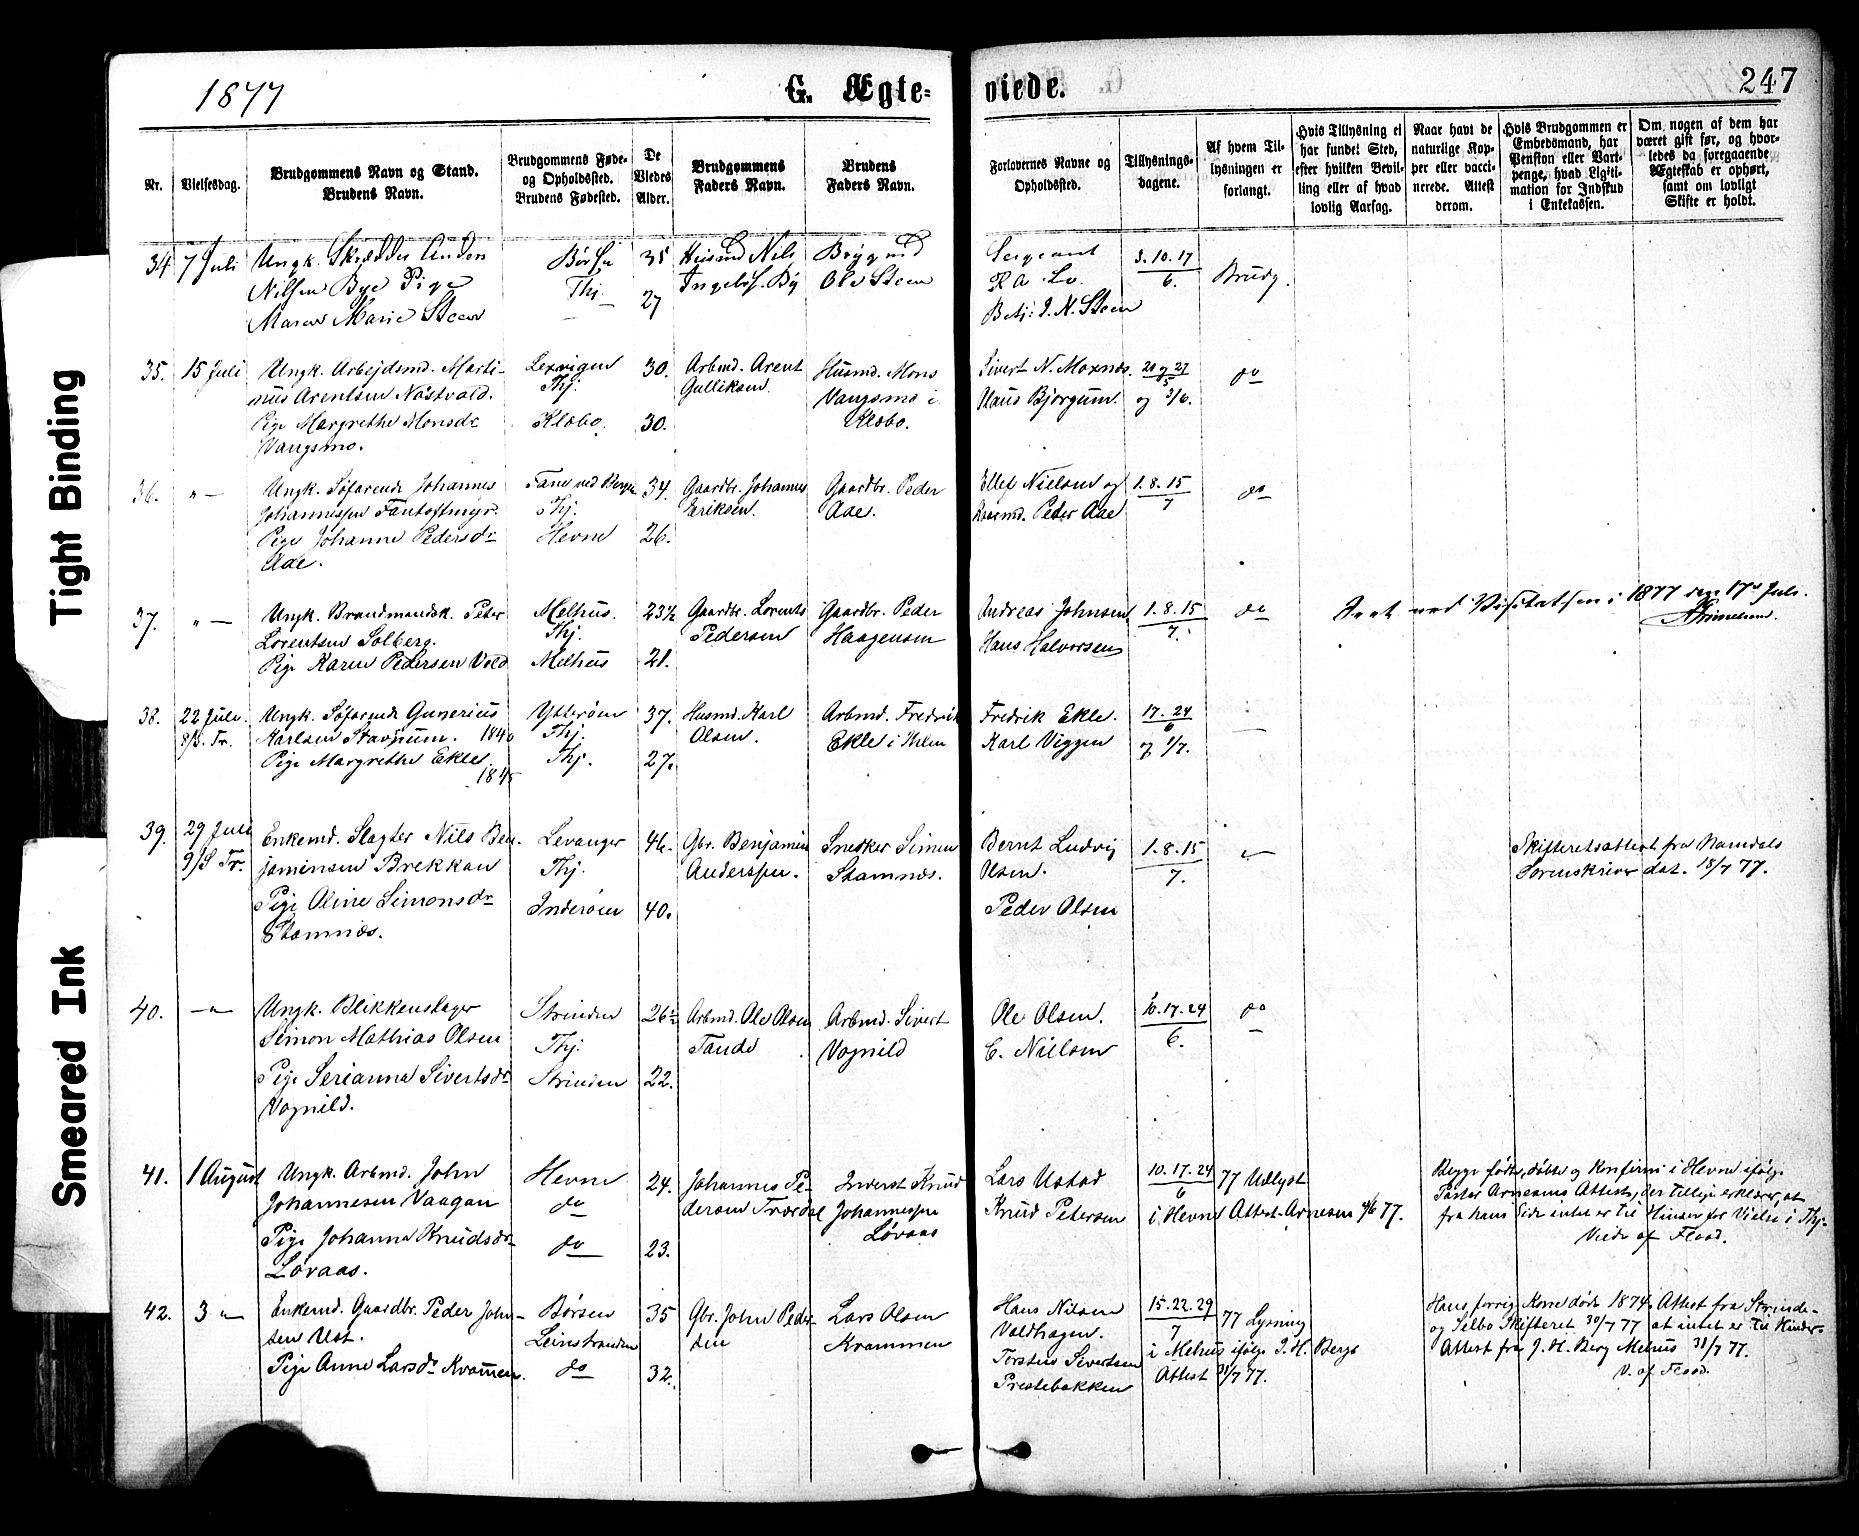 1877
G. Ægte-
viede.
247
Nr.
Vielsesdag.
Brudgommens Navn og Stand.
Brudens Navn.
BrudgommensFøde-
og Opholdssted.
Brudens Fødested.
De
Viedes
Alder.
Brudgommens
Faders Navn.
Brudens
Faders Navn.
Forlovernes Navne og
Opholdssted.
Tillysnings-
dagene.
Af hvem Til-
lysningen er
forlangt.
Hvis Tillysning ei
har fundet Sted,
efter hvilken Bevil-
ling eller af hvad
lovlig Aarsag.
Naar havt de
naturlige Kop-
per eller vacci-
nerede. Attest
derom.
Hvis Brudgommen er
Embedsmand, har
Pension eller Vart-
penge, hvad Legiti-
mation for Indskud
i Enkekassen.
Om nogen af dem har
været gift før, og hvor-
ledes da foregaaende
Ægteskab er ophørt,
samt om lovligt
Skifte er holdt.
34
7 Juli
Ungk. Skrædder Anders
Nilsen Bye Pige
Maren Marie Steen
Børsa
Thj.
35
27
Husmd Nils
Ingebr. By
Ole Steen
Sergeant
Lo.
Betj: J. N. Steen
3. 10. 17
6.
Brudg.
35.
15 Juli
Ungk. Arbejdsmd. Marti-
nus Arentsen Nøstvold.
Pige Margrethe Monsdr
Vangsmo.
Lexvigen
Thj.
Klæbo.
30.
30.
Arbmd. Arent
Gulliksen.
Husmd. Mons
Vangsmo i
Klæbo.
Sivert N. Moxnæs.
Claus Bjørgum.
20 og 27
5
og 3/6.
do
36.
" —
Ungk. Søfarende Johannes
Johannessen Fantoftmyr.
Pige Johanne Pedersdr
Aae.
Fane ved Bergen
Thj.
Hevne
34.
26.
Gaardbr. Johannes
Eriksen.
Gaardbr. Peder
Aae.
Ellef Nielsen og
Peter Aae
1. 8. 15
7
do
37.
" —
Ungk. Brandmandsk. Peter
Lorentsen Solberg.
Pige Karen Pedersen Vold
Melhus.
Thj.
Melhus
23½
21.
Gaardbr. Lorents
Pedersen
Gaardbr. Peder
Haagensen
Andreas Johnsen
Hans Halvorsen
1. 8. 15
7.
do
Seet ved Visitatsen i 1877 den 17de Juli.
AGrimelund.
38.
22 Juli.
8/S. Tr.
Ungk. Søfarende Gunerius
Karlsen Stavrum. 1840
Pige Margrethe Ekle.
Ytterøen
Thj.
Thj.
37.
27.
Husmd. Karl
Olsen.
Arbmd. Fredrik
Ekle i
Fredrik Ekle.
Karl Viggen
17. 24
6
og 1/7.
—
39.
29 Juli
9/S Tr.
Enkemd. Slagter Nils Ben-
jaminsen Brekkan
Pige Oline Simonsdr
Stamnæs.
Levanger
Thj.
Inderøen
46.
40.
Gbr. Benjamin
Anderssen.
Snekker Simen
Stamnæs.
Bernt Ludvig
Olsen.
Peder Olsen
1. 8. 15
7.
"
Skifteretsattest fra Namdals
Sorenskriver dat. 18/7 77.
40.
—"—
Ungk. Blikkenslager
Simon Mathias Olsen
Pige Serianna Sivertsdr
Vognild.
Strinden
Thj.
Strinden
26½
22.
Arbmd. Ole Olsen
Tande
Arbmd. Sivert
Vognild
Ole Olsen.
C. Nielsen
10. 17. 24
6.
do
41.
1 August
Ungk. Arbmd. John
Johannesen Vaagan
Pige Johanna Knudsdr
Løvaas.
Hevne
do
do
24.
23.
Johannes Pe-
dersen
Inderst Knud
Johannessen
Løvaas
Lars Ustad
Knud Petersen
10. 17. 24
6
77 Udlyst
i Hevne Attest Arnesen 77.
Begge fødte, døbte og Konfirm. i Hevne ifølge
Pastor Arnesens Attest, der tillige erklærer, at
fra hans Side intet er til Hinder for Vielse i Thj.
Viede af Flood.
42.
3 "
Enkemd. Gaardbr. Peder John-
sen Ust.
Pige Anne Larsdr Kvammen.
Børsen
Leinstranden
do
35
32.
Gbr. John Peder-
sen
Lars Olsen
Kvammen
Hans Nilsen
Valdhagen.
Torsten Sivertsen
Prestebakken
15. 22. 29
7
77 Lysning
i Melhus ifølge J. H. Bergs
Attest 31/7 77.
Hans forrige Kone døde 1874. Attest fra Strinde-
og Selbo Skifteret 30/7 77 at intet er til Hinder.
Attest fra J. H. Berg Melhus 31/7 77.
V. af Flood.
Tight Binding
Smeared Ink